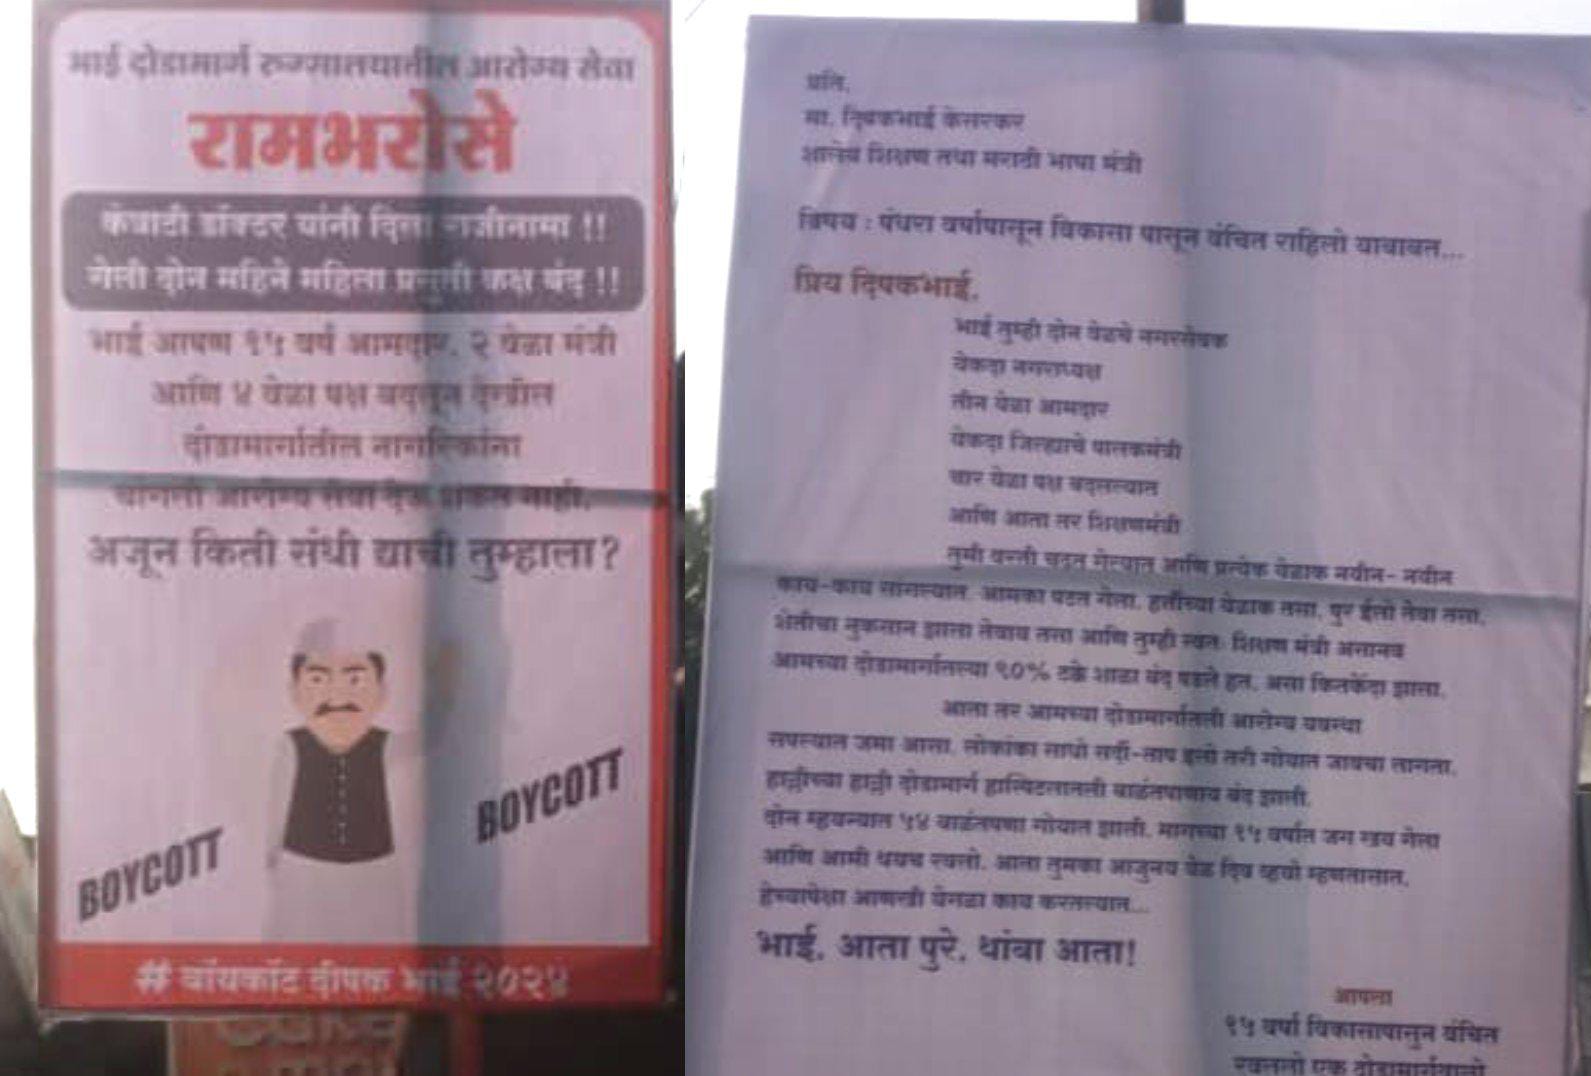 भाई दोडामार्ग रुग्णालयातील आरोग्य सेवा
रामभरोसे
कंत्राटी डॉक्टर यांनी दिला राजीनामा !!
गेली दोन महिने महिला प्रसुती कक्ष बंद !!
भाई आपण १५ वर्ष आमदार, २ वेळा मंत्री
आणि ४ वेळा पक्ष बदलून देखील
दोडामार्गातील नागरिकांना
चांगली आरोग्य सेवा देऊ शकत नाही.
अजून किती संधी द्याची तुम्हाला?
BOYCOTT
BOYCOTT
# बॉयकॉट दीपक भाई २०२४
प्रति,
मा. दिपकभाई केसरकर
शालेय शिक्षण तथा मराठी भाषा मंत्री
विषय : पंधरा वर्षापासून विकासा पासून वंचित राहिलो याबाबत...
प्रिय दिपकभाई,
भाई तुम्ही दोन वेळचे नगरसेवक
येकदा नगराध्यक्ष
तीन वेळा आमदार
येकदा जिल्ह्याचे पालकमंत्री
चार वेळा पक्ष बदलल्यात
आणि आता तर शिक्षणमंत्री
तुमी वरती चढत गेल्यात आणि प्रत्येक वेळाक नवीन- नवीन
काय-काय सांगल्यात. आमका पटत गेला. हत्तीच्या वेळाक तसा, पुर ईलो तेवा तसा,
शेतीचा नुकसान झाला तेवाय तसा आणि तुम्ही स्वतः शिक्षण मंत्री असानव
आमच्या दोडामार्गातल्या ९०% टक्के शाळा बंद पडले हत, असा कितकेंदा झाला.
आता तर आमच्या दोडामार्गातली आरोग्य यवस्था
सपल्यात जमा आसा. लोकांका साधो सर्दी-ताप इलो तरी गोयात जावचा लागता.
हल्लीच्या हल्ली दोडामार्ग हास्पिटलातली बाळंतपणाय बंद झाली.
दोन म्हयन्यात ५४ बाळंतपणा गोयात झाली. मागच्या १५ वर्षात जग खय गेला
आणि आमी थयच रवलो. आता तुमका आजुनय वेळ दिव व्हयो म्हणतासात.
हेच्यापेक्षा आणखी वेगळा काय करतल्यात...
भाई, आता पुरे, थांबा आता!
आपला
१५ वर्षा विकासापासुन वंचित
रवललो एक दोडामार्गवालो